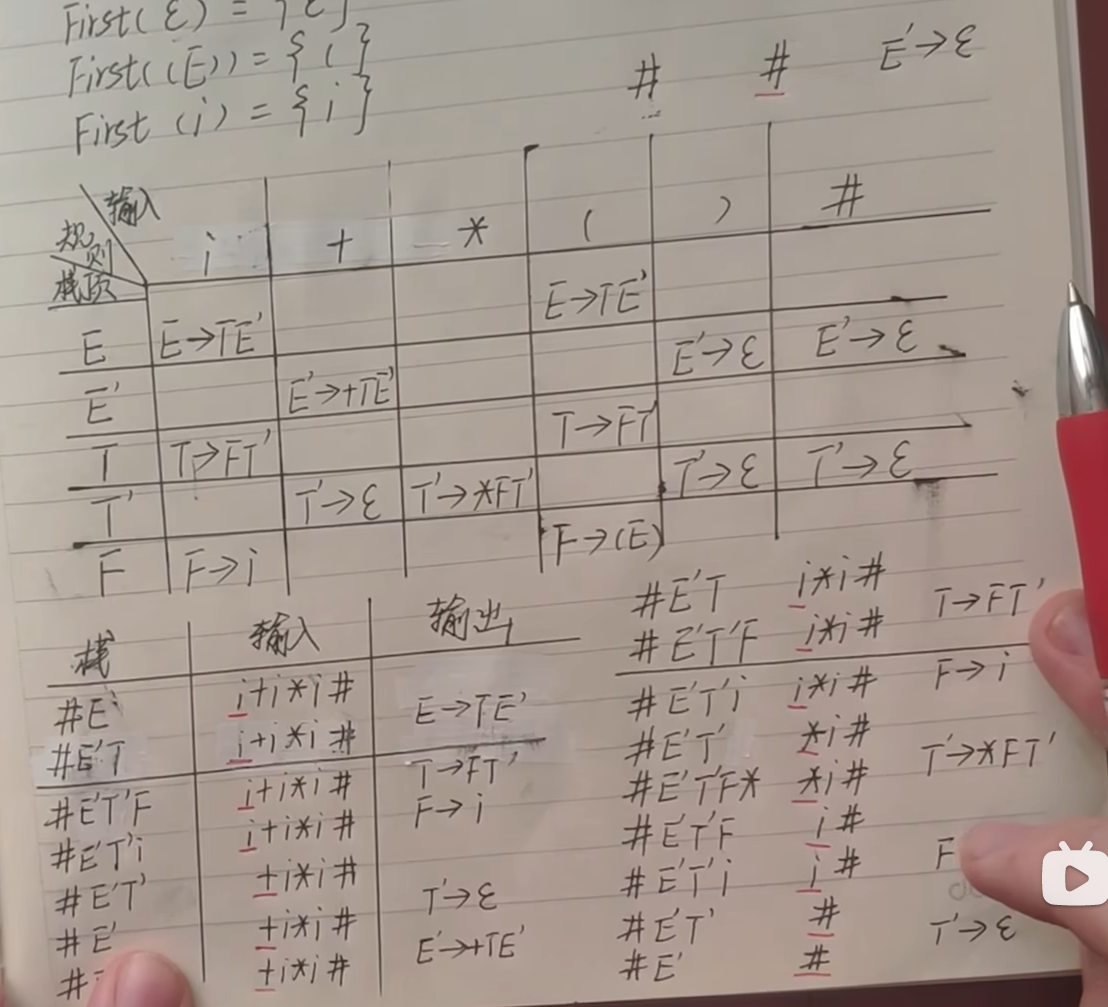 First(ε) = {ε}
First((E)) = { ( }
First (i) = { i }
# # E'→ε
输入
规则
栈顶
i + * ( ) #
E E→TE' E→TE'
E' E'→+TE' E'→ε E'→ε
T T→FT' T→FT'
T' T'→ε T'→*FT' T'→ε T'→ε
F F→i F→(E)
栈 输入 输出
#E i+i*i# E→TE'
#E'T i+i*i# T→FT'
#E'T'F i+i*i# F→i
#E'T'i i+i*i#
#E'T' +i*i# T'→ε
#E' +i*i# E'→+TE'
# +i*i#
#E'T i*i# T→FT'
#E'T'F i*i# F→i
#E'T'i i*i#
#E'T' *i# T'→*FT'
#E'T'F* *i#
#E'T'F i# F
#E'T'i i#
#E'T' # T'→ε
#E' #